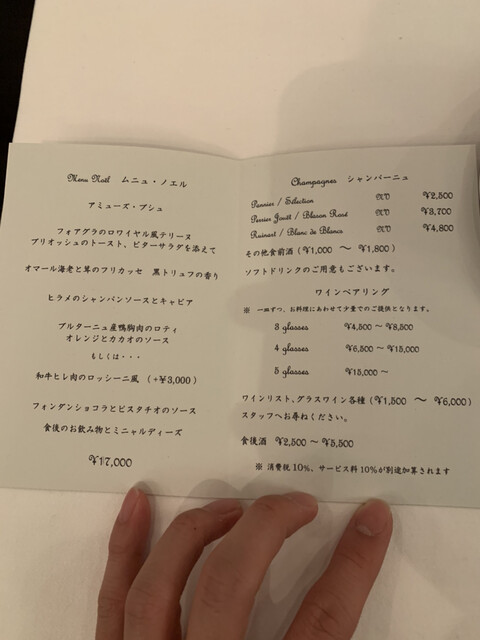 Menu Noël　ムニュ・ノエル
アミューズ・ブシュ
フォアグラのロワイヤル風テリーヌ
ブリオッシュのトースト、ビターサラダを添えて
オマール海老と茸のフリカッセ　黒トリュフの香り
ヒラメのシャンパンソースとキャビア
ブルターニュ産鴨胸肉のロティ
オレンジとカカオのソース
もしくは・・・
和牛ヒレ肉のロッシーニ風　（+￥3,000）
フォンダンショコラとピスタチオのソース
食後のお飲み物とミニャルディーズ
￥17,000
Champagnes　シャンパーニュ
Pannier / Sélection　NV　￥2,500
Perrier Jouët / Blason Rosé　NV　￥3,700
Ruinart / Blanc de Blancs　NV　￥4,800
その他食前酒（￥1,000　～　￥1,800）
ソフトドリンクのご用意もございます。
ワインペアリング
※　一皿ずつ、お料理にあわせて少量でのご提供となります。
3 glasses　￥4,500 ～ ￥8,500
4 glasses　￥6,500 ～ ￥15,000
5 glasses　￥15,000 ～
ワインリスト、グラスワイン各種（￥1,500　～　￥6,000）
スタッフへお尋ねください。
食後酒　￥2,500 ～ ￥5,500
※ 消費税10％、サービス料10％が別途加算されます